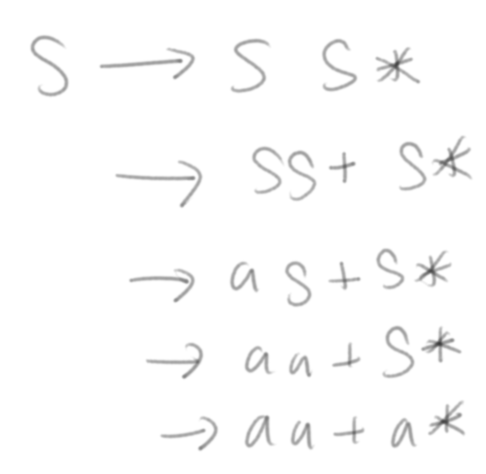 S → S S *
→ SS + S *
→ a S + S *
→ a a + S *
→ a a + a *